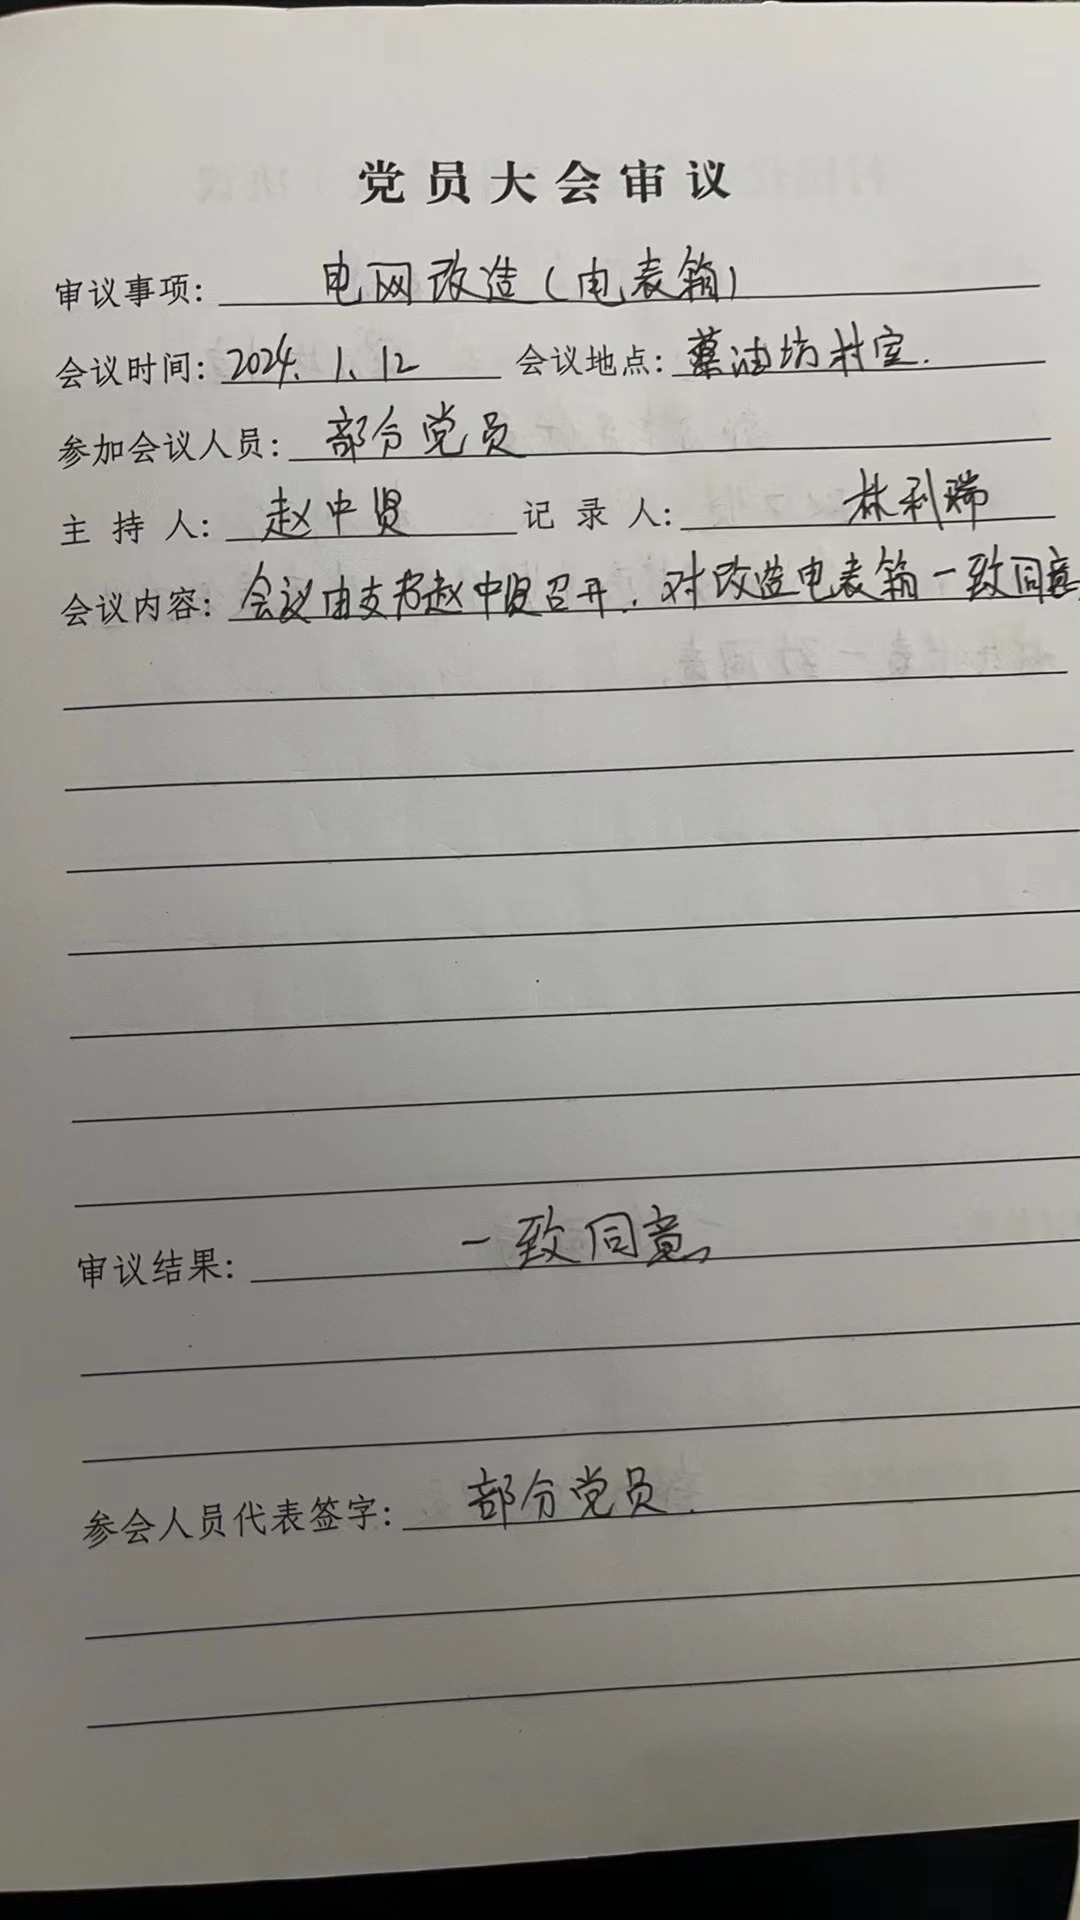 党员大会审议
审议事项: 电网改造(电表箱)
会议时间: 2024.1.12 会议地点: 油坊村室.
参加会议人员: 部分党员
主持人: 赵中贤 记录人: 林利瑞
会议内容: 会议由支书赵中贤召开.对改造电表箱一致同意
审议结果: 一致同意
参会人员代表签字: 部分党员.